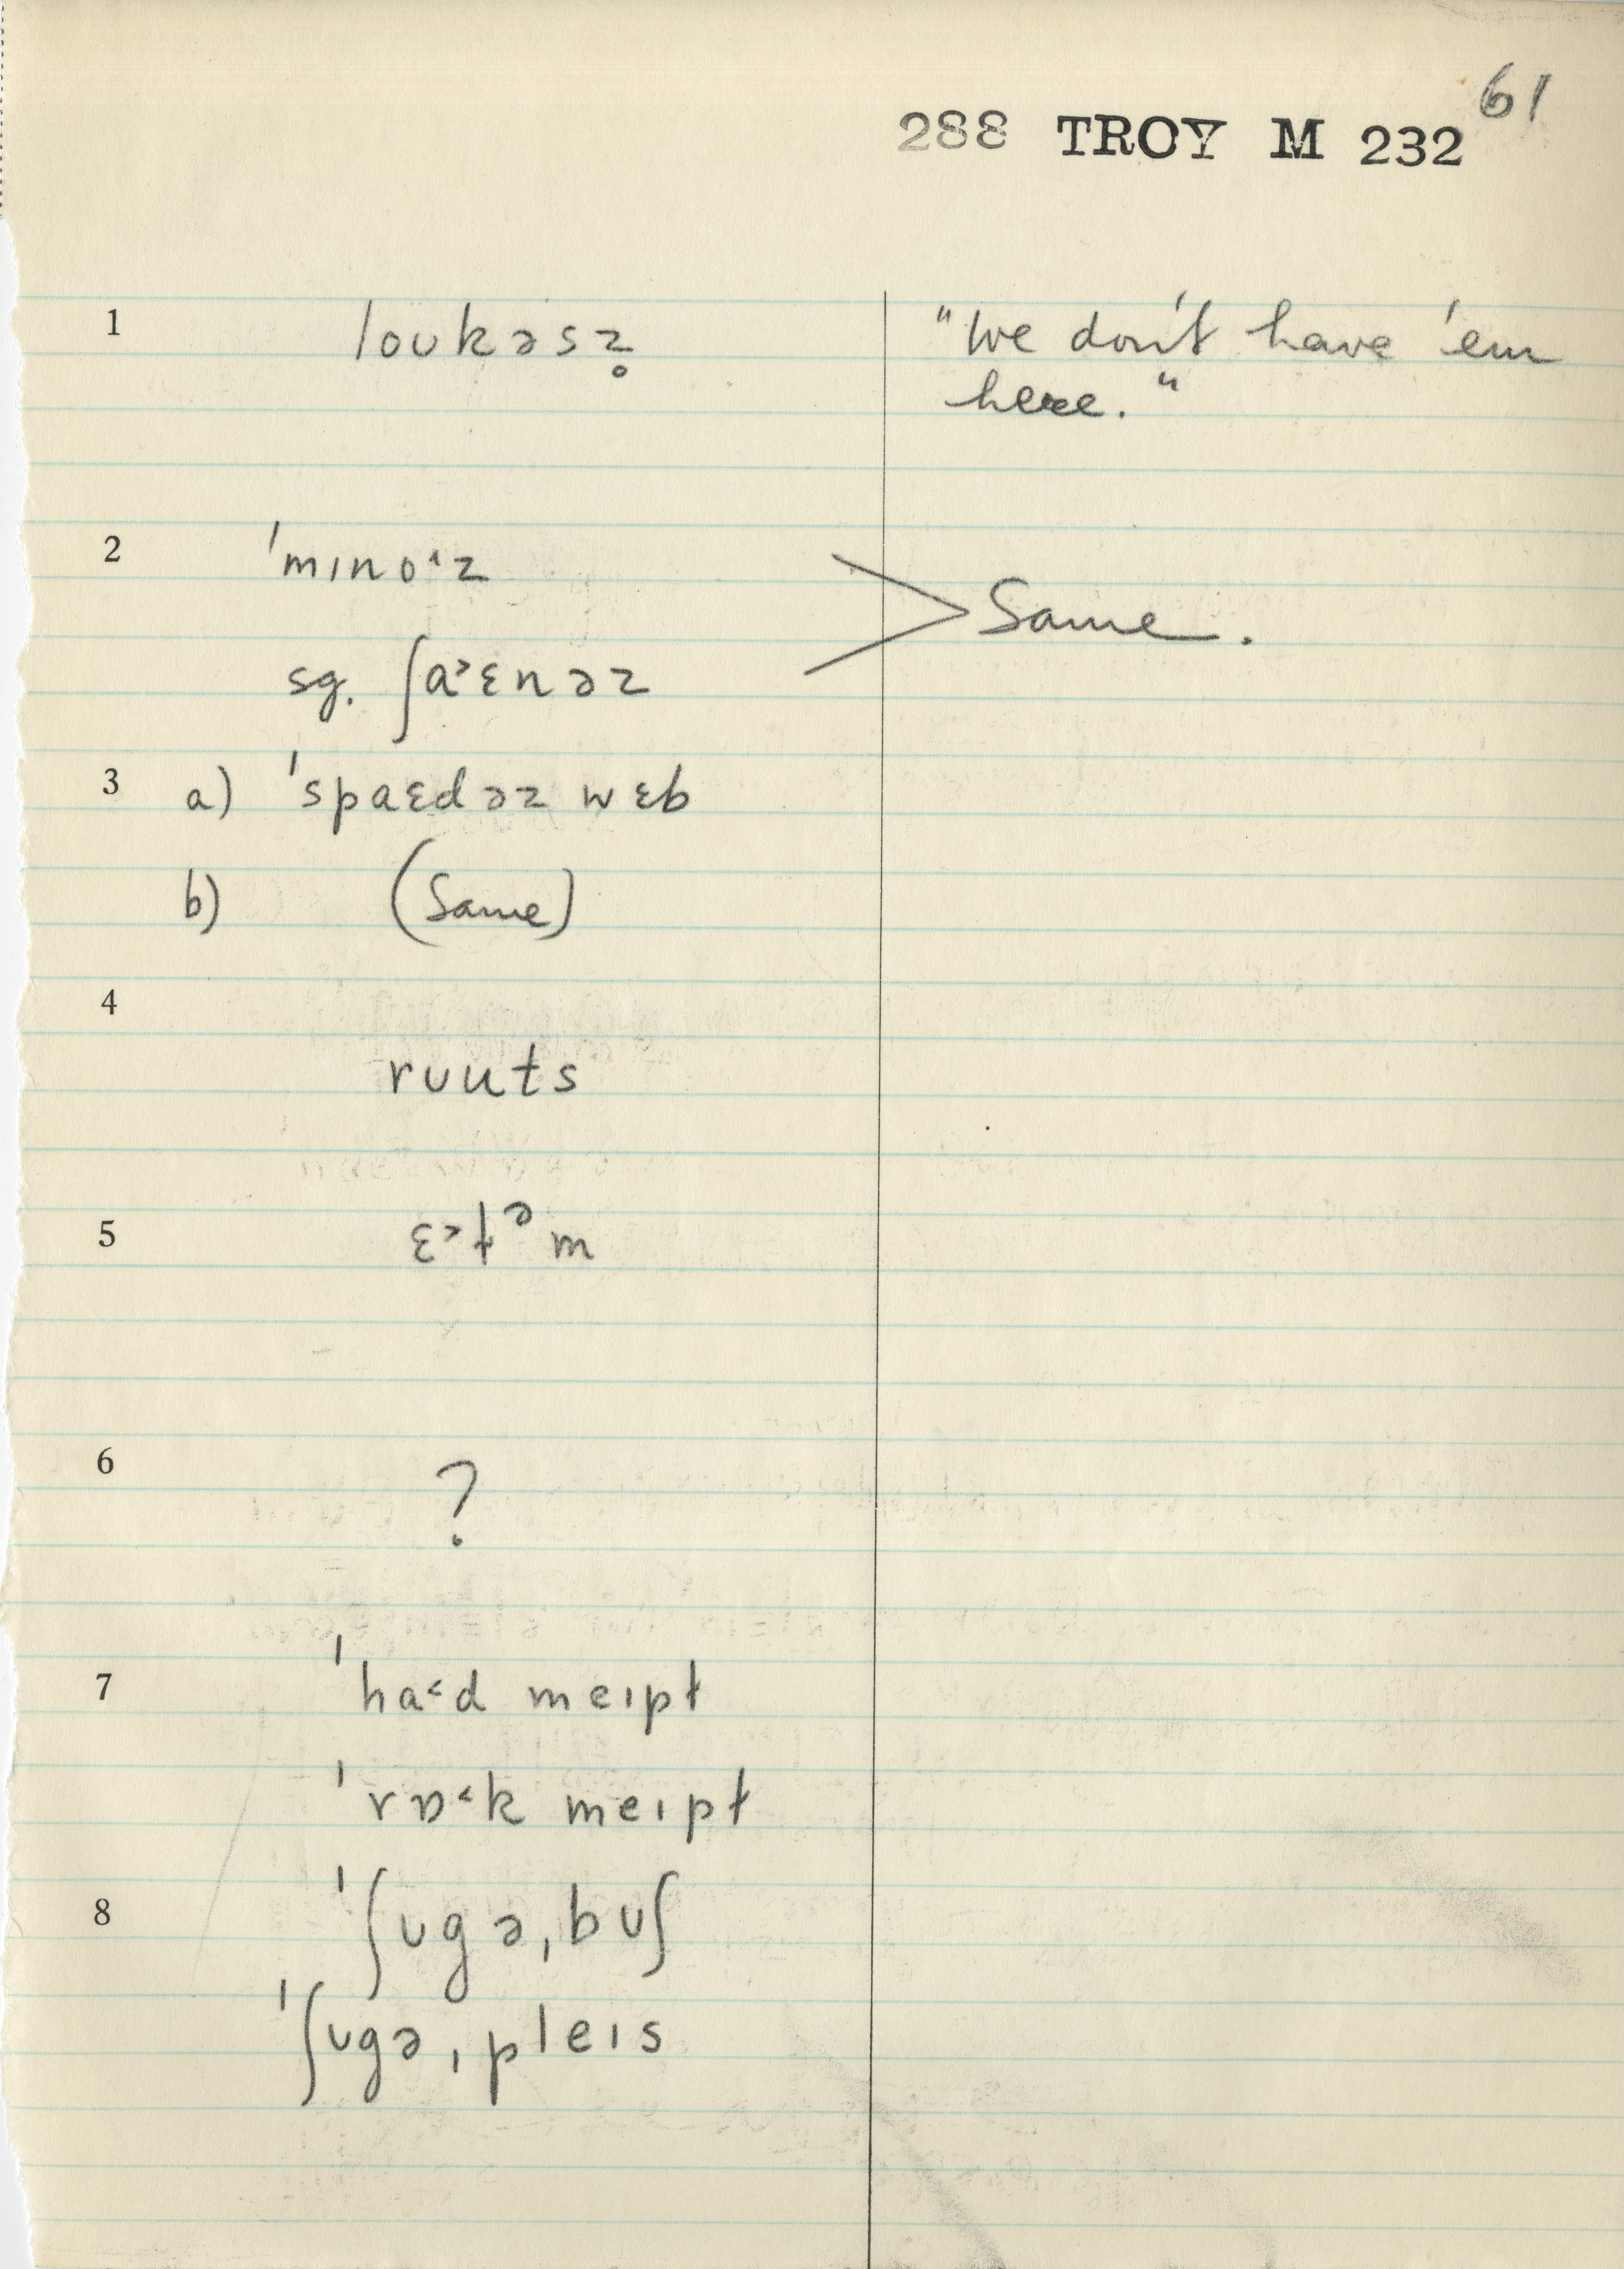 61
288 TROY M 232
1 loʊkəsz̥ "We don't have 'em
here."
2 ˈmɪnoˑz
Same.
sg. ʃa˃ɛnəz
3 a) ˈspaɛdəz wɛb
b) (Same)
4
rʊuts
5 ɛ˃ɫᵊm
6 ?
7 ˈha˂d meɪpɫ
ˈrɒ˂k meɪpɫ
8 ˈʃʊgəˌbʊʃ
ˈʃʊgəˌpleɪs